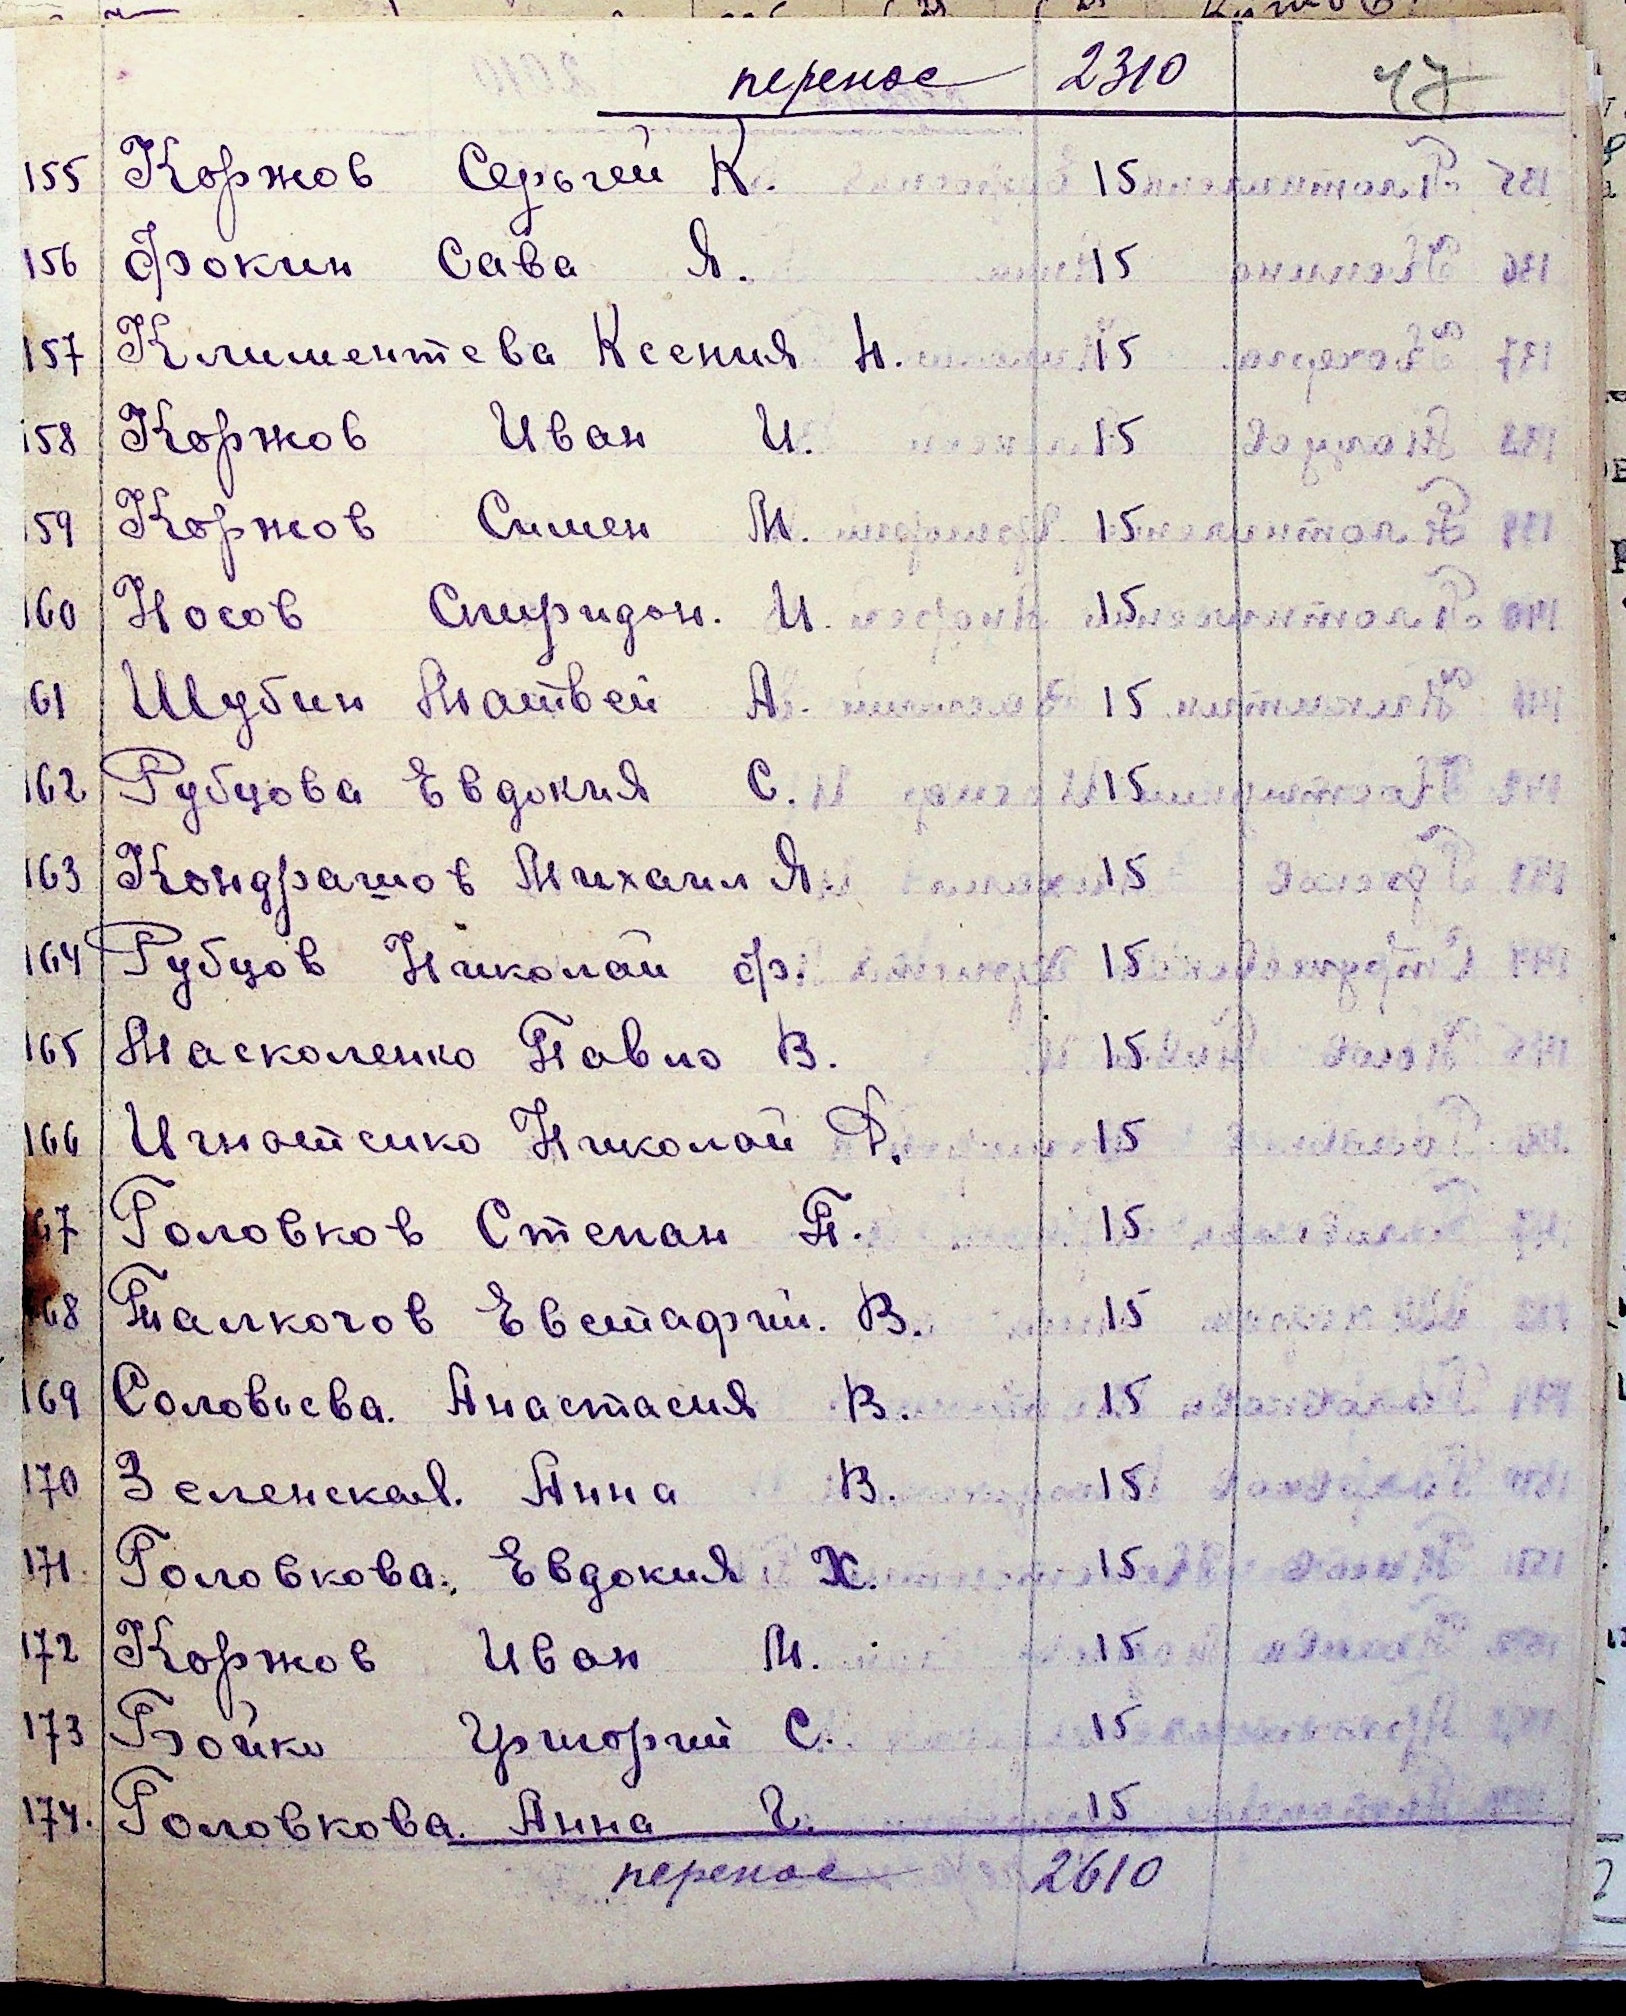 перенос 2310 47
155 Коржов Серьгей К. 15
156 Фокин Сава Я. 15
157 Климентева Ксения Н. 15
158 Коржов Иван И. 15
159 Коржов Симен М. 15
160 Носов Спиридон. И. 15
161 Шубин Матвей А. 15
162 Рубцова Евдокия С. 15
163 Кондрашов Михаил Я. 15
164 Рубцов Николай Ф. 15
165 Масколенко Павло В. 15
166 Игнатенко Николай Д. 15
167 Головков Степан П. 15
168 Евстафий. В. 15
169 Соловьева. Анастасия В. 15
170 Зеленская. Анна В. 15
171. Головкова. Евдокия Х. 15
172 Коржов Иван М. 15
173 Бойко Григорий С. 15
174. Головкова. Анна Г. 15
перенос 2610